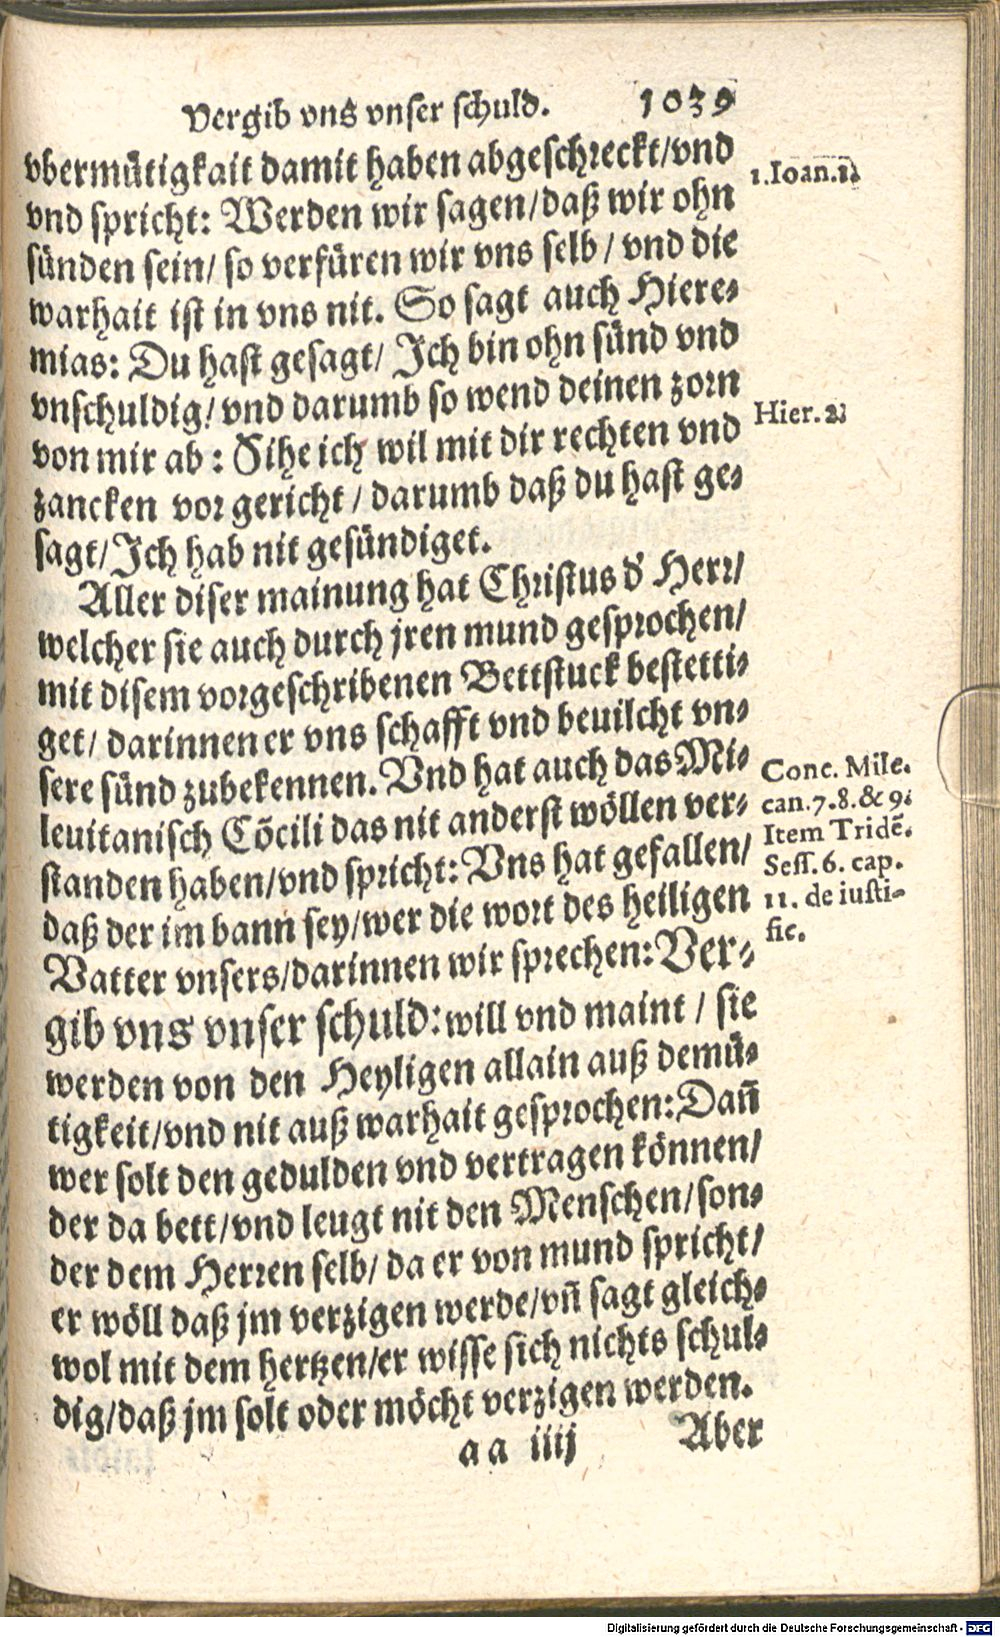 Vergib vns vnser schuld. 1039
vbermütigkait damit haben abgeschreckt/vnd
vnd spricht: Werden wir sagen/daß wir ohn
sünden sein/ so verfüren wir vns selb / vnd die
warhait ist in vns nit. So sagt auch Hiere-
mias: Du hast gesagt/ Ich bin ohn sünd vnd
vnschuldig/ vnd darumb so wend deinen zorn
von mir ab : Sihe ich wil mit dir rechten vnd
zancken vor gericht / darumb daß du hast ge-
sagt/Ich hab nit gesündiget.
Aller diser mainung hat Christus d' Herr/
welcher sie auch durch jren mund gesprochen/
mit disem vorgeschribenen Bettstuck bestetti-
get/ darinnen er vns schafft vnd beuilcht vn-
sere sünd zubekennen. Vnd hat auch das Mi-
leuitanisch Cōcili das nit anderst wöllen ver-
standen haben/vnd spricht: Vns hat gefallen/
daß der im bann sey/wer die wort des heiligen
Vatter vnsers/darinnen wir sprechen: Ver-
gib vns vnser schuld: will vnd maint / sie
werden von den Heyligen allain auß demü-
tigkeit/vnd nit auß warhait gesprochen: Dañ
wer solt den gedulden vnd vertragen können/
der da bett/vnd leugt nit den Menschen/son-
der dem Herren selb/ da er von mund spricht/
er wöll daß jm verzigen werde/vñ sagt gleich-
wol mit dem hertzen/er wisse sich nichts schul-
dig/daß jm solt oder möcht verzigen werden.
aa iiij Aber
1.Ioan.1.
Hier. 2.
Conc. Mile.
can.7.8.& 9.
Item Tridē.
Sess. 6. cap.
11. de iusti-
fic.
Digitalisierung gefördert durch die Deutsche Forschungsgemeinschaft - DFG